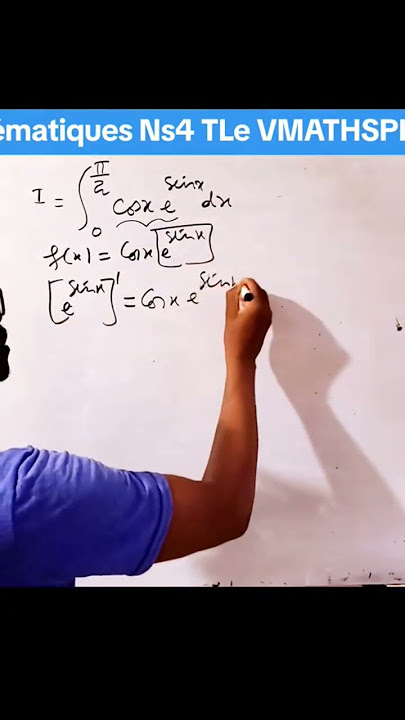 ématiques Ns4 TLe VMATHSP
I = ∫₀^(π/2) cosx e^(sinx) dx
f(x) = cosx e^(sinx)
[e^(sinx)]' = cosx e^(sinx